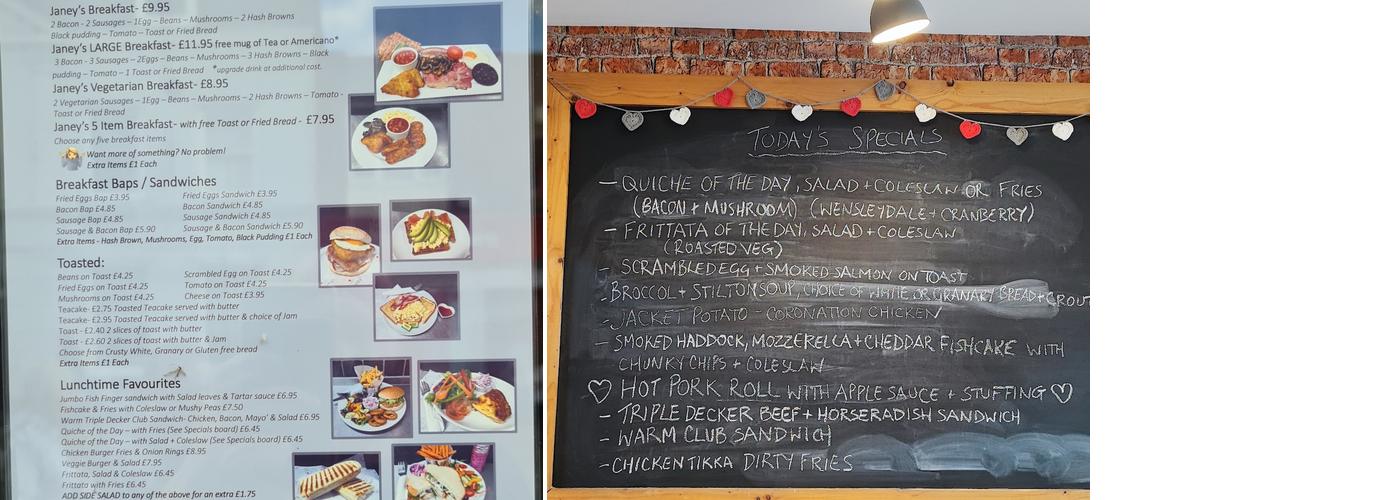 Janey's Breakfast- £9.95
2 Bacon - 2 Sausages – 1Egg – Beans – Mushrooms – 2 Hash Browns
Black pudding – Tomato – Toast or Fried Bread
Janey's LARGE Breakfast- £11.95 free mug of Tea or Americano*
3 Bacon - 3 Sausages – 2Eggs – Beans – Mushrooms – 3 Hash Browns – Black
pudding – Tomato – 1 Toast or Fried Bread *upgrade drink at additional cost.
Janey's Vegetarian Breakfast- £8.95
2 Vegetarian Sausages – 1Egg – Beans – Mushrooms – 2 Hash Browns – Tomato -
Toast or Fried Bread
Janey's 5 Item Breakfast- with free Toast or Fried Bread - £7.95
Choose any five breakfast items
Want more of something? No problem!
Extra Items £1 Each
Breakfast Baps / Sandwiches
Fried Eggs Bap £3.95 Fried Eggs Sandwich £3.95
Bacon Bap £4.85 Bacon Sandwich £4.85
Sausage Bap £4.85 Sausage Sandwich £4.85
Sausage & Bacon Bap £5.90 Sausage & Bacon Sandwich £5.90
Extra Items - Hash Brown, Mushrooms, Egg, Tomato, Black Pudding £1 Each
Toasted:
Beans on Toast £4.25 Scrambled Egg on Toast £4.25
Fried Eggs on Toast £4.25 Tomato on Toast £4.25
Mushrooms on Toast £4.25 Cheese on Toast £3.95
Teacake- £2.75 Toasted Teacake served with butter
Teacake- £2.95 Toasted Teacake served with butter & choice of Jam
Toast - £2.40 2 slices of toast with butter
Toast - £2.60 2 slices of toast with butter & Jam
Choose from Crusty White, Granary or Gluten free bread
Extra Items £1 Each
Lunchtime Favourites
Jumbo Fish Finger sandwich with Salad leaves & Tartar sauce £6.95
Fishcake & Fries with Coleslaw or Mushy Peas £7.50
Warm Triple Decker Club Sandwich- Chicken, Bacon, Mayo' & Salad £6.95
Quiche of the Day – with Fries (See Specials board) £6.45
Quiche of the Day – with Salad + Coleslaw (See Specials board) £6.45
Chicken Burger Fries & Onion Rings £8.95
Veggie Burger & Salad £7.95
Frittata, Salad & Coleslaw £6.45
Frittata with Fries £6.45
ADD SIDE SALAD to any of the above for an extra £1.75
TODAY'S SPECIALS
– QUICHE OF THE DAY, SALAD + COLESLAW OR FRIES
(BACON + MUSHROOM) (WENSLEYDALE + CRANBERRY)
– FRITTATA OF THE DAY, SALAD + COLESLAW
(ROASTED VEG)
– SCRAMBLED EGG + SMOKED SALMON ON TOAST
- BROCCOL + STILTON SOUP, CHOICE OF WHITE OR GRANARY BREAD + CROUT
– JACKET POTATO – CORONATION CHICKEN
– SMOKED HADDOCK, MOZZERELLA + CHEDDAR FISHCAKE WITH
CHUNKY CHIPS + COLESLAW
♡ HOT PORK ROLL WITH APPLE SAUCE + STUFFING ♡
– TRIPLE DECKER BEEF + HORSERADISH SANDWICH
– WARM CLUB SANDWICH
– CHICKEN TIKKA DIRTY FRIES